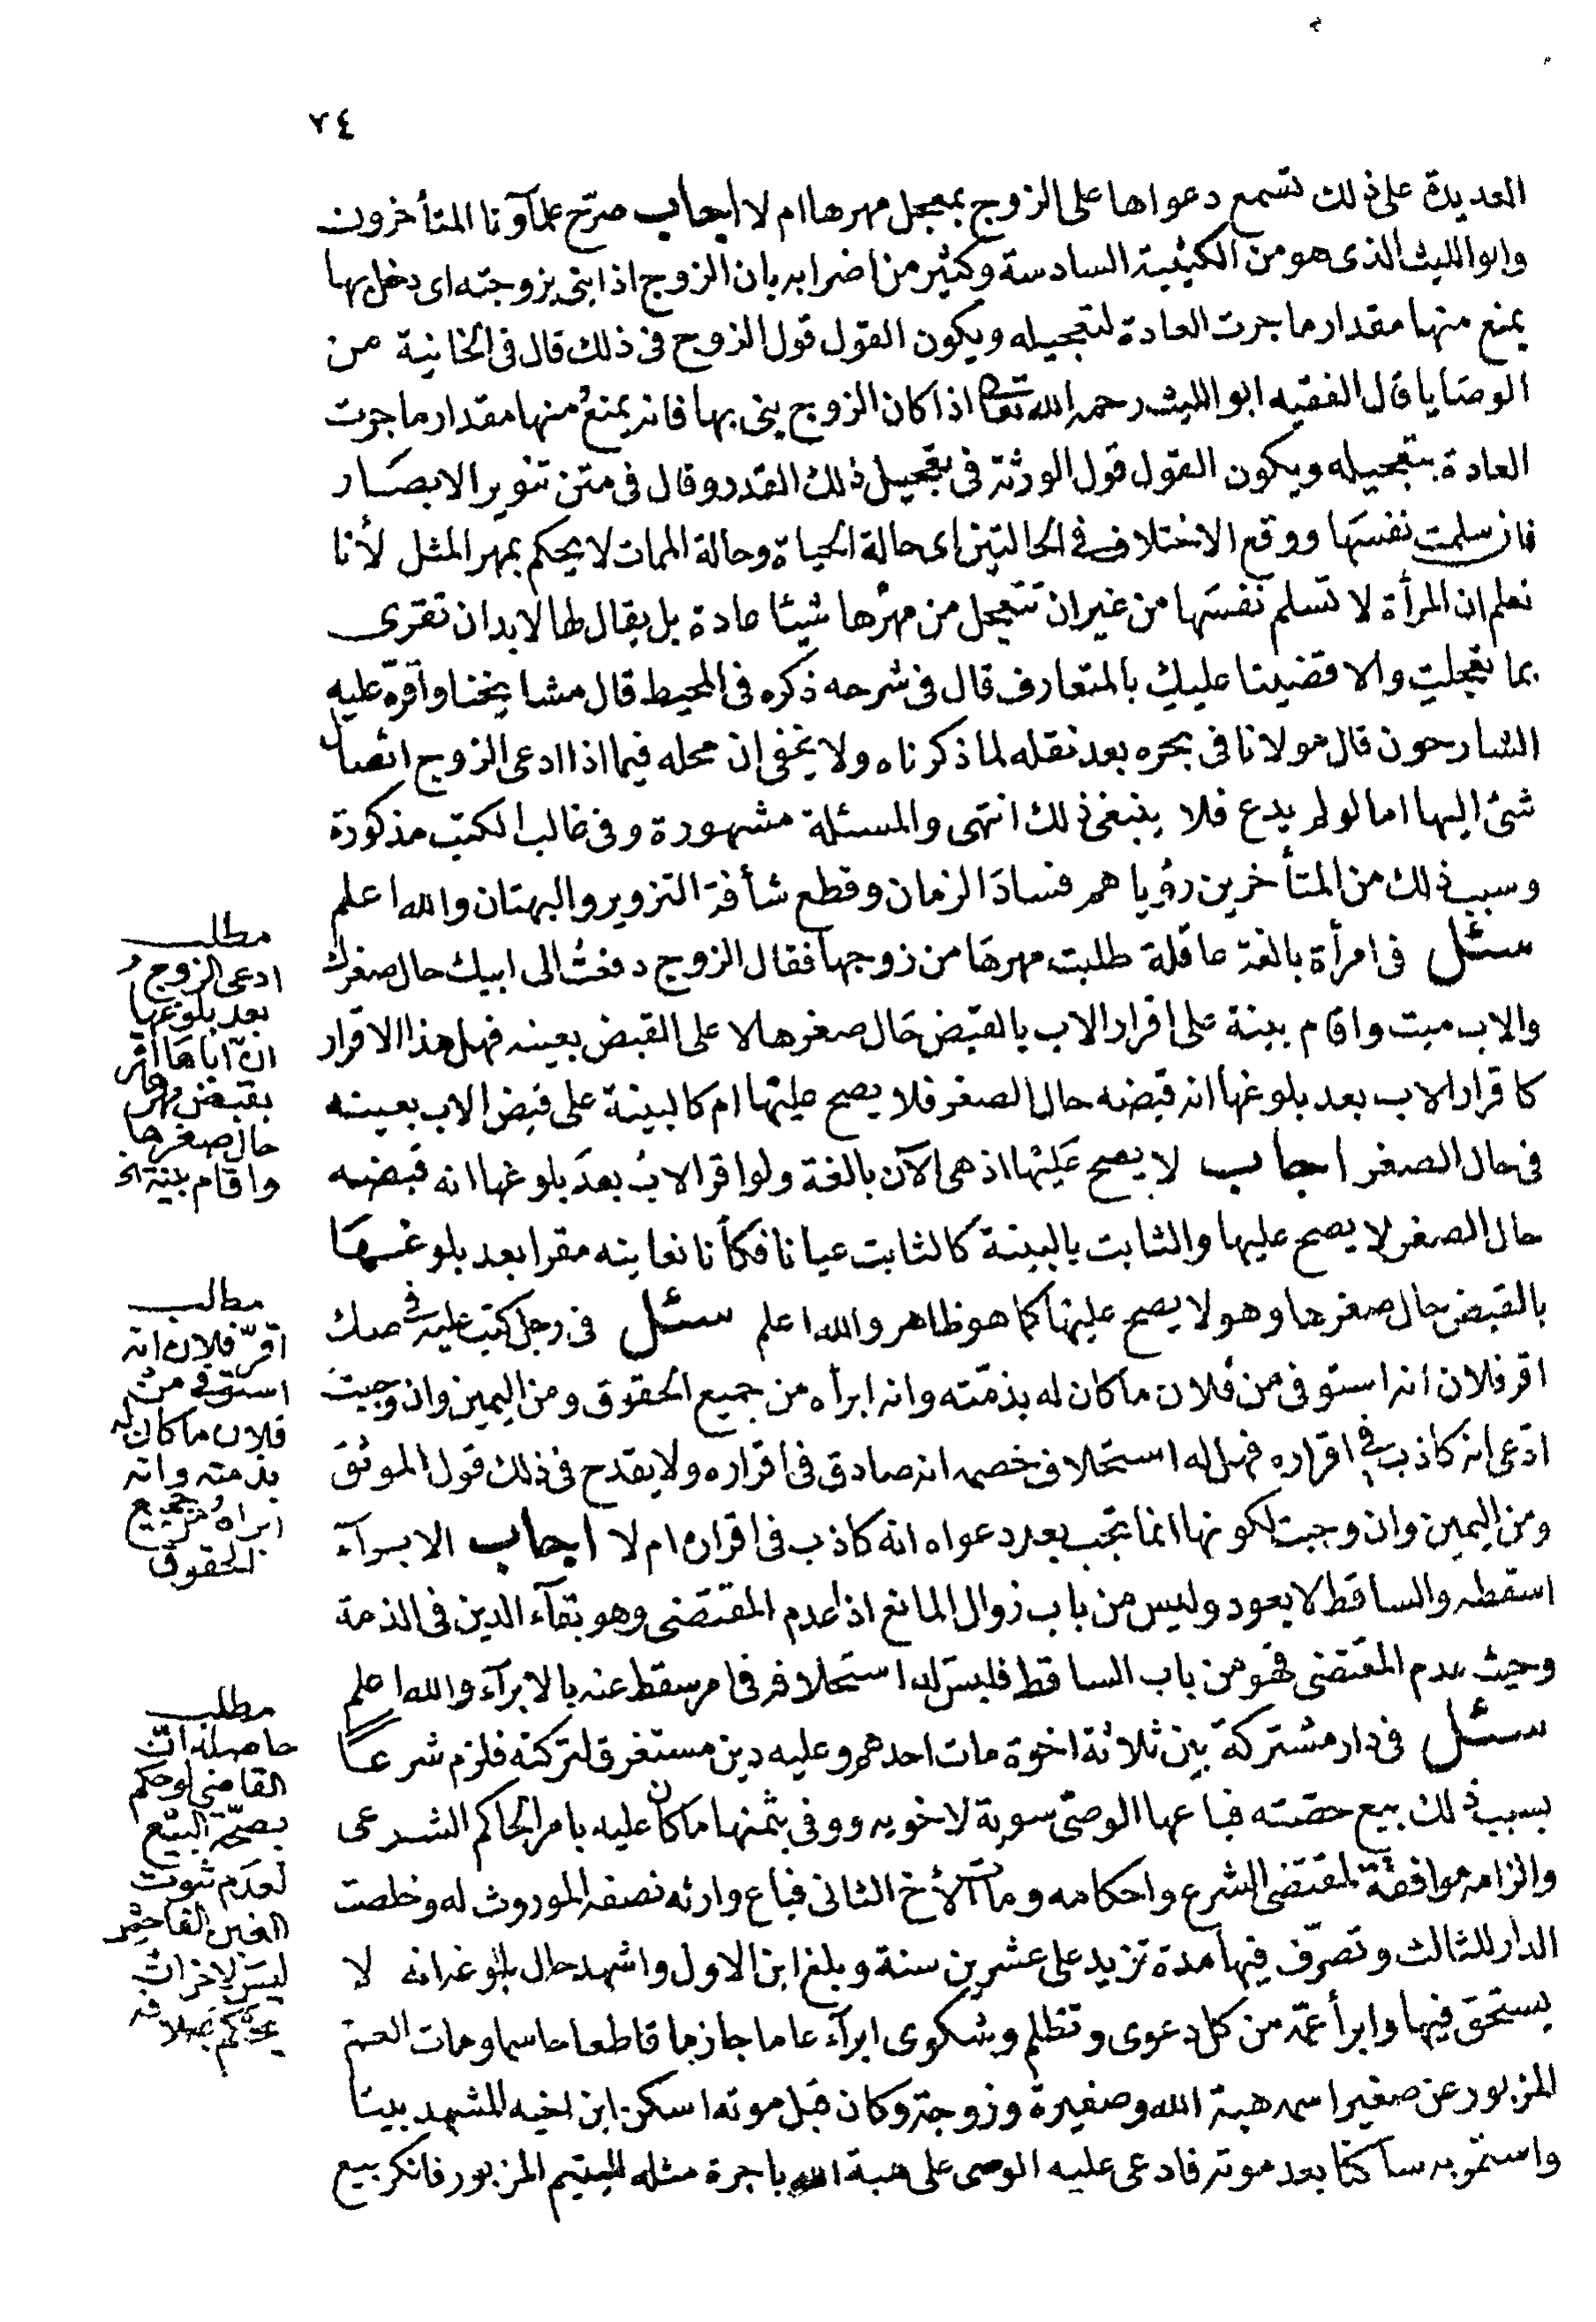 ٧٤
العديدة على ذلك تسمع دعواها على الزوج بمعجل مهرها ام لا اجاب صرّح علمآؤنا المتأخرون
وابو الليث الذى هو من الكثيبة السادسة وكثير من اضرابه بان الزوج اذا بنى بزوجته اى دخل بها
يمنع منها مقدار ما جرت العادة لتعجيله ويكون القول قول الزوج فى ذلك قال فى الخانية من
الوصايا قال الفقيه ابو الليث رحمه الله تعا اذا كان الزوج بنى بها فانه يمنع منها مقدار ما جرت
العادة بتعجيله ويكون القول قول الورثة فى تعجيل ذلك القدر وقال فى متن تنوير الابصار
فان سلمت نفسها ووقع الاختلاف فى الحالتين اى حالة الحياة وحالة الممات لا يحكم بمهر المثل لأنا
نعلم ان المرأة لا تسلم نفسها من غير ان تتعجل من مهرها شيئا عادة بل يقال لها لابد ان تقرى
بما تعجلت والا قضينا عليك بالمتعارف قال فى شرحه ذكره فى المحيط قال مشايخنا واقرّه عليه
الشارحون قال مولانا فى بحره بعد نقله لما ذكرناه ولا يخفى ان محله فيما اذا ادعى الزوج ايصال
شئ اليها اما لو لم يدع فلا ينبغى ذلك انتهى والمسئلة مشهورة وفى غالب الكتب مذكورة
وسبب ذلك من المتأخرين رؤياهم فساد الزمان وقطع شأفة التزوير والبهتان والله اعلم
سئل فى امرأة بالغة عاقلة طلبت مهرها من زوجها فقال الزوج دفعت الى ابيك حال صغرك
والاب ميت واقام بينة على اقرار الاب بالقبض حال صغرها لا على القبض بعينه فهل هذا الاقرار
كاقرار الاب بعد بلوغها انه قبضه حال الصغر فلا يصح عليها ام كالبينة على قبض الاب بعينه
فى حال الصغر اجاب لا يصح عليها اذ هى الآن بالغة ولو اقر الاب بعد بلوغها انه قبضه
حال الصغر لا يصح عليها والثابت بالبينة كالثابت عيانا فكأنا نعاينه مقرا بعد بلوغها
بالقبض حال صغرها وهو لا يصح عليها كما هو ظاهر والله اعلم سئل فى رجل كتب عليه فى صك
اقر فلان انه استوفى من فلان ما كان له بذمّته وانه ابرأه من جميع الحقوق ومن اليمين وان وجبت
ادّعى انه كاذب فى اقراره فهل له استحلاف خصمه انه صادق فى اقراره ولا يقدح فى ذلك قول الموثق
ومن اليمين وان وجبت لكونها انما تجب بعد دعواه انه كاذب فى اقراره ام لا اجاب الابرآء
اسقطه والساقط لا يعود وليس من باب زوال المانع اذا عدم المقتضى وهو بقآء الدين فى الذمة
وحيث عدم المقتضى فهو من باب الساقط فليس له استحلافه فى امر سقط عنه بالابرآء والله اعلم
سئل فى دار مشتركة بين ثلاثة اخوة مات احدهم وعليه دين مستغرق لتركته فلزم شرعا
بسبب ذلك بيع حصته فباعها الوصى سوية لاخويه ووفى بثمنها ما كان عليه بامر الحاكم الشرعى
والزامه موافقة لمقتضى الشرع واحكامه ومات الأخ الثانى فباع وارثه نصفه الموروث له وخلصت
الدار للثالث وتصرّف فيها مدة تزيد على عشرين سنة وبلغ ابن الاول واشهد حال بلوغه انه لا
يستحق فيها وابرأ عمّه من كل دعوى وتظلم وشكوى ابرآء عاما جازما قاطعا حاسما ومات العم
المزبور عن صغير اسمه هبة الله وصغيرة وزوجة وكان قبل موته اسكن ابن اخيه المشهد بيتا
واستمر به ساكنا بعد موته فادعى عليه الوصى على هبة الله باجرة مثله لليتيم المزبور فانكر بيع
مطلب
ادعى الزوج
بعد بلوغها
انّ اباها اقر
بقبض مهرها
حال صغرها
واقام بينة الخ
مطلب
اقرّ فلان انه
استوفى من
فلان ما كان له
بذمته وانه
ابراه من جميع
الحقوق
مطلب
حاصله انّ
القاضى لو حكم
بصحّة البيع
لعدم ثبوت
الغبن الفاحش
ليس لاخر ان
يحكم بخلافه